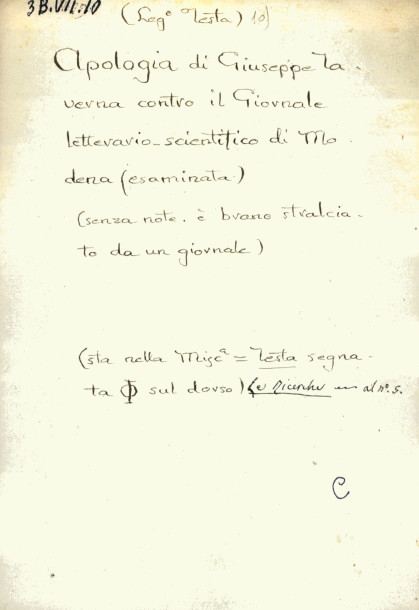 3B.VII.10
(Legº Testa) 10)
Apologia di Giuseppe Ta-
verna contro il Giornale
letterario-scientifico di Mo-
dena (esaminata)
(senza note. è brano stralcia-
to da un giornale)
(sta nella Miscª = Testa segna-
ta Φ sul dorso) al nº. 5.
C